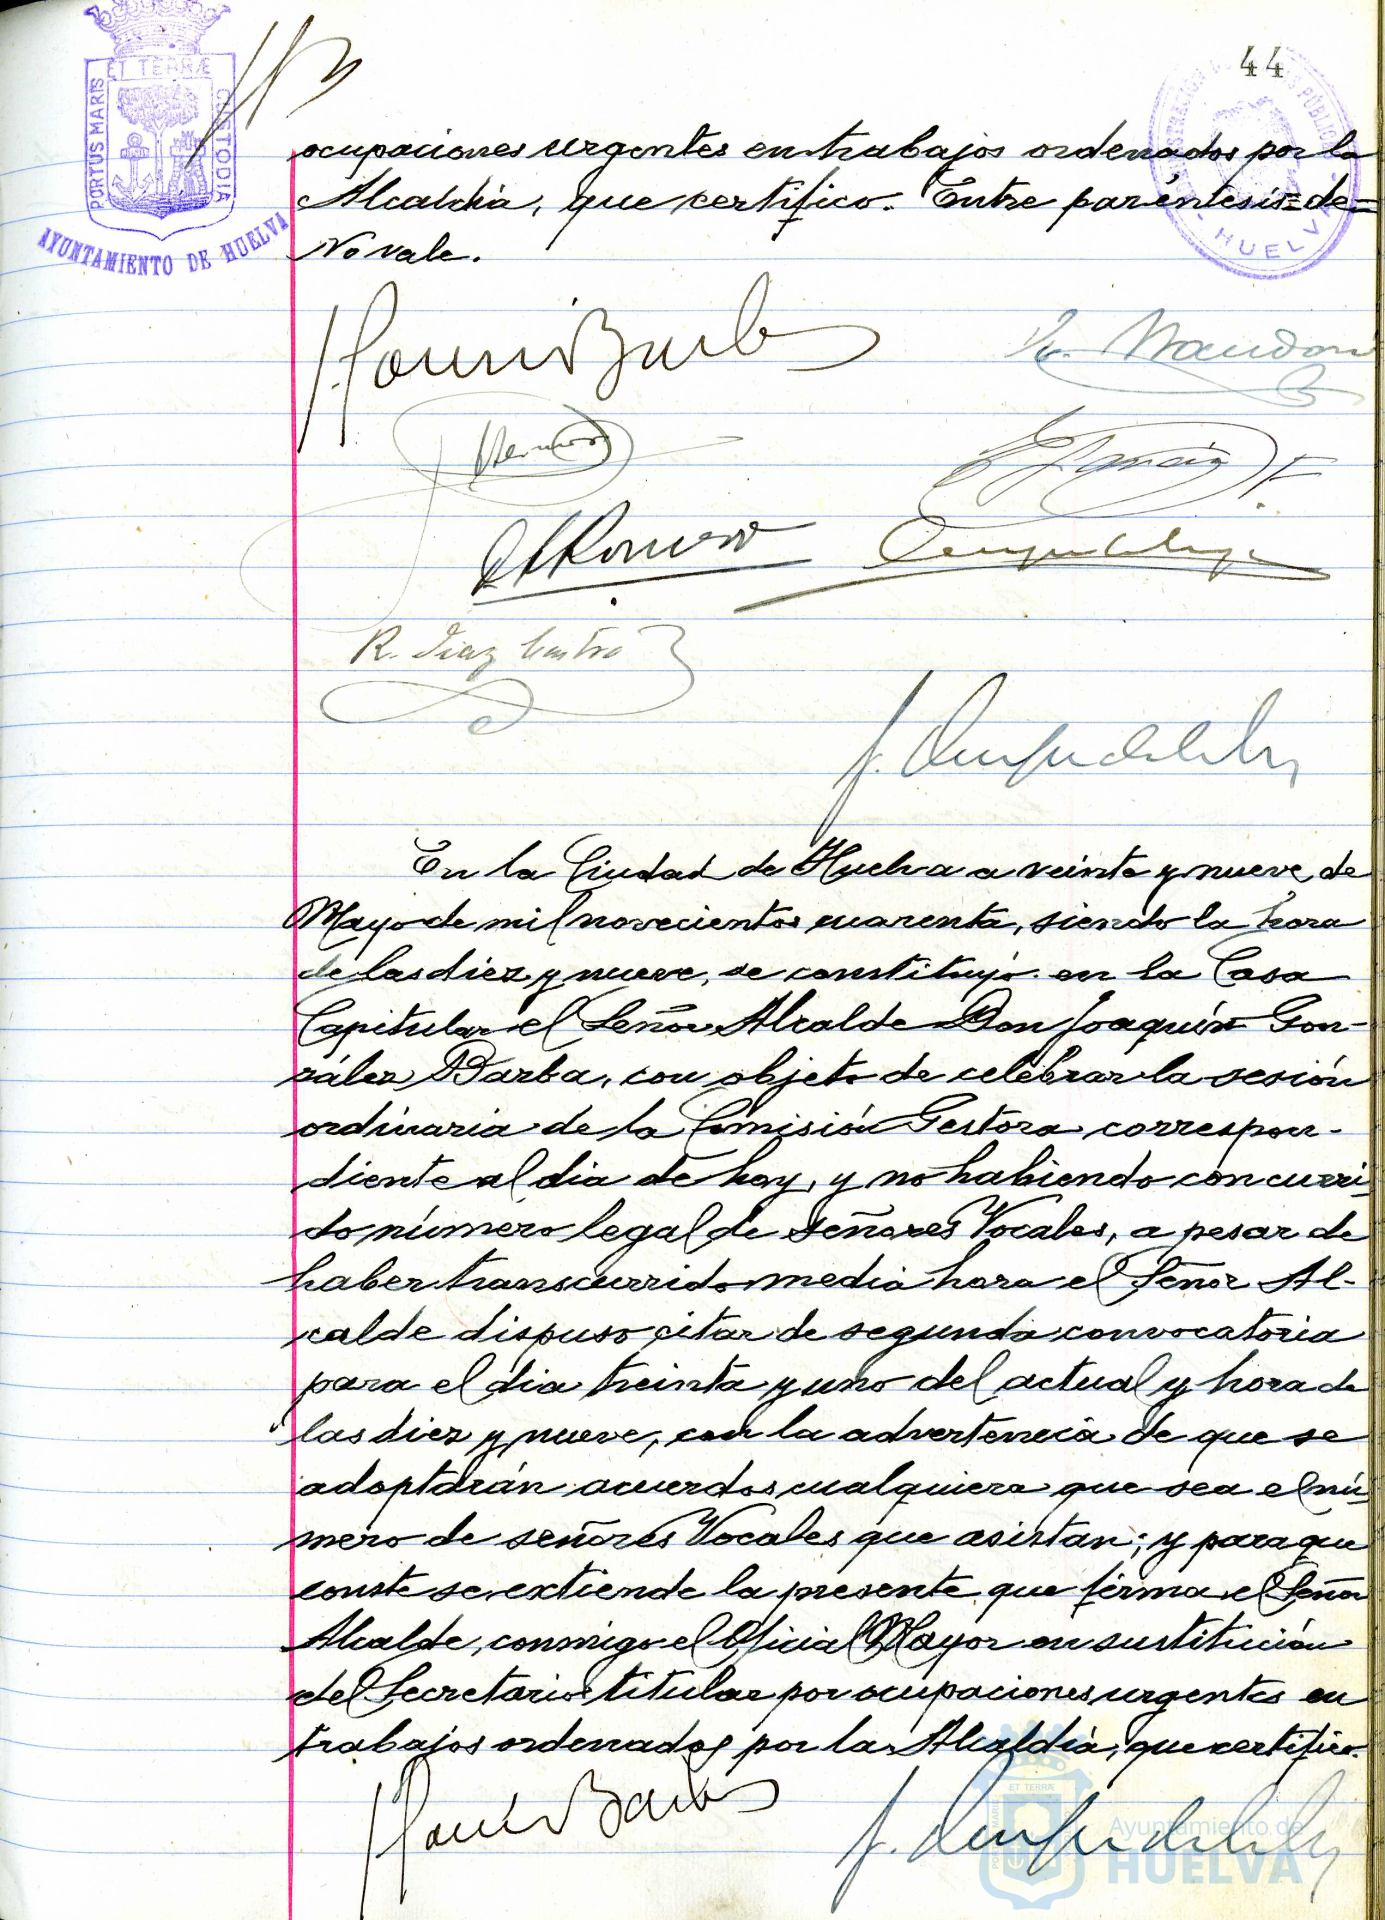 44
PORTUS MARIS ET TERRÆ CUSTODIA
AYUNTAMIENTO DE HUELVA
- HUELVA -
ocupaciones urgentes en trabajos ordenados por la
Alcaldía, que certifico. Entre paréntesis=de=
No vale.
R. Diaz Castro
En la Ciudad de Huelva a veinte y nueve de
Mayo de mil novecientos cuarenta, siendo la hora
de las diez y nueve, se constituyó en la Casa
Capitular el Señor Alcalde Don Joaquín Gon-
zález Barba, con objeto de celebrar la sesión
ordinaria de la Comisión Gestora correspon-
diente al dia de hoy, y no habiendo concurri-
do número legal de señores Vocales, a pesar de
haber transcurrido media hora el Señor Al-
calde dispuso citar de segunda convocatoria
para el dia treinta y uno del actual y hora de
las diez y nueve, con la advertencia de que se
adoptarán acuerdos cualquiera que sea el nú-
mero de señores Vocales que asistan; y para que
conste se extiende la presente que firma el Señor
Alcalde, conmigo el Oficial Mayor en sustitución
del Secretario titular por ocupaciones urgentes en
trabajos ordenados por la Alcaldía, que certifico.
Ayuntamiento de
HUELVA